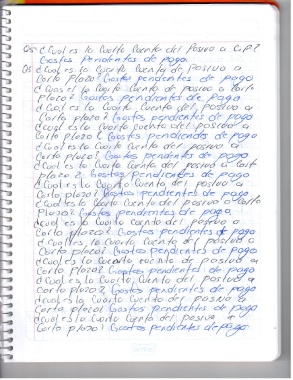 05 ¿Cual es la Cuarta Cuenta del Pasivo a C.P?
Gastos Pendientes de pago
05 ¿Cual es la Cuarta Cuenta de Pasivo a
Corto Plazo? Gastos pendientes de pago
¿Cual es la Cuarta Cuenta de pasivo a Corto
Plazo? Gastos pendientes de pago
¿Cual es la Cuarta Cuenta del pasivo a
Corto plazo? Gastos pendientes de pago
¿Cual es la Cuarta Cuenta del pasivo a
Corto plazo? Gastos pendientes de pago
¿Cual es la Cuarta Cuenta del pasivo a
Corto plazo? Gastos pendientes de pago
¿Cual es la Cuarta Cuenta del pasivo a Corto
plazo? Gastos pendientes de pago
¿Cual es la Cuarta Cuenta del pasivo a
Corto plazo? Gastos pendientes de pago
¿Cual es la Cuarta Cuenta del pasivo a Corto
Plazo? Gastos pendientes de pago
¿Cual es la Cuarta Cuenta del pasivo a
Corto plazo? Gastos pendientes de pago
¿Cual es la Cuarta Cuenta del pasivo a
Corto plazo? Gastos pendientes de pago
¿Cual es la Cuarta cuenta de pasivo a
Corto plazo? Gastos pendientes de pago
¿Cual es la Cuarta Cuenta del pasivo a
Corto plazo? Gastos pendientes de pago
¿Cual es la Cuarta Cuenta del pasivo a
Corto plazo? Gastos pendientes de pago
¿Cual es la Cuarta Cuenta del pasivo a
Corto plazo? Gastos pendientes de pago